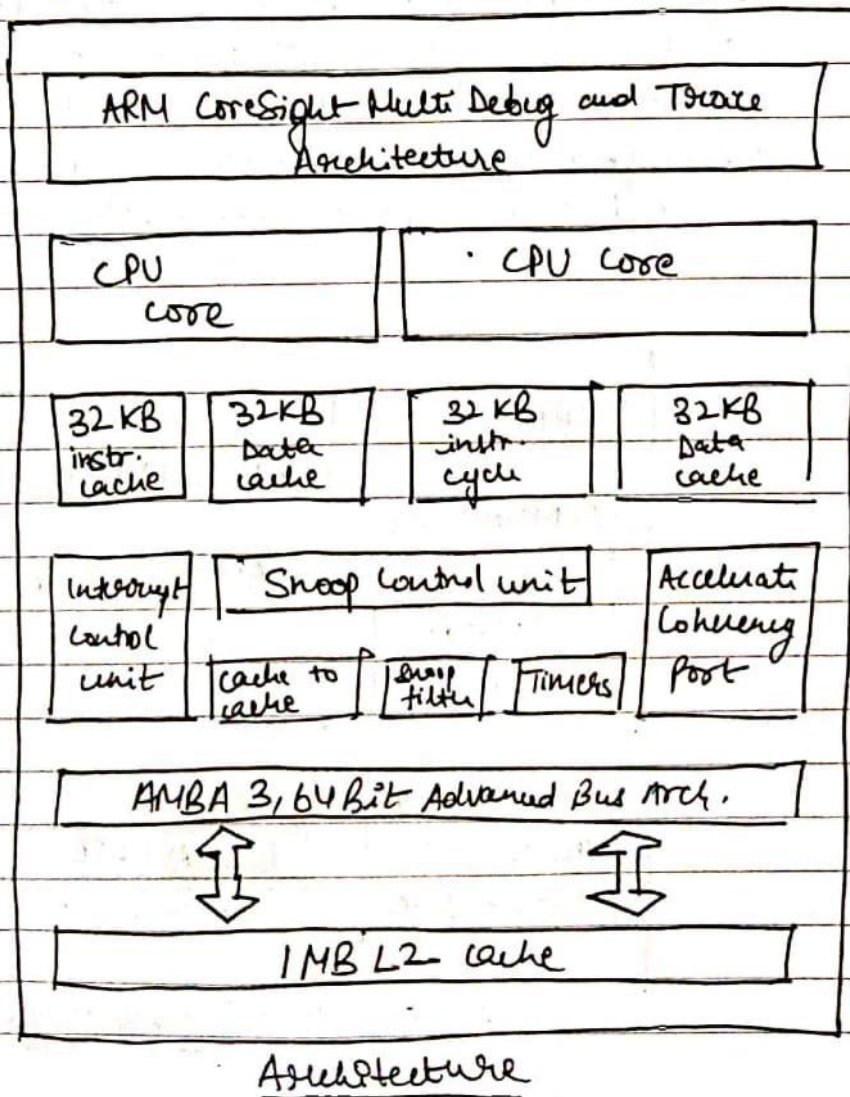 ARM CoreSight Multi Debug and Trace
Architecture
CPU
core
CPU core
32 KB
instr.
cache
32KB
Data
cache
32 KB
instr.
cycle
32KB
Data
cache
Interrupt
control
unit
Snoop control unit
cache to
cache
snoop
filter
Timers
Accelerate
Coherency
Port
AMBA 3, 64 Bit Advanced Bus Arch.
1MB L2 cache
Architecture